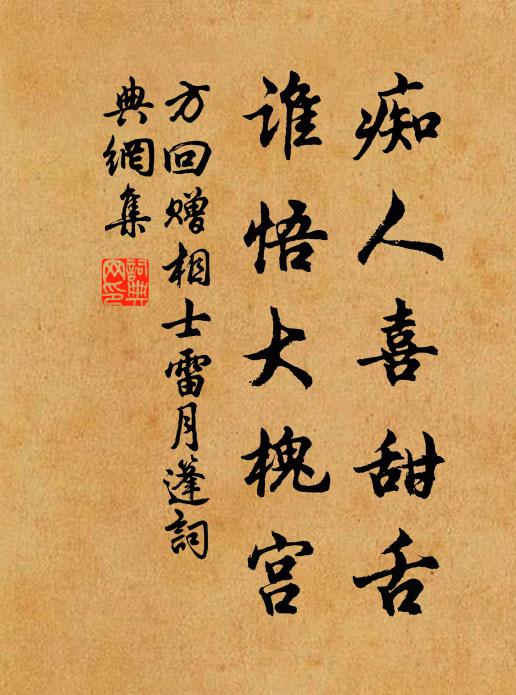 痴人喜甜舌
谁悟大槐宫
方回赠相士雷月蓬詞
典網集
詞典網印